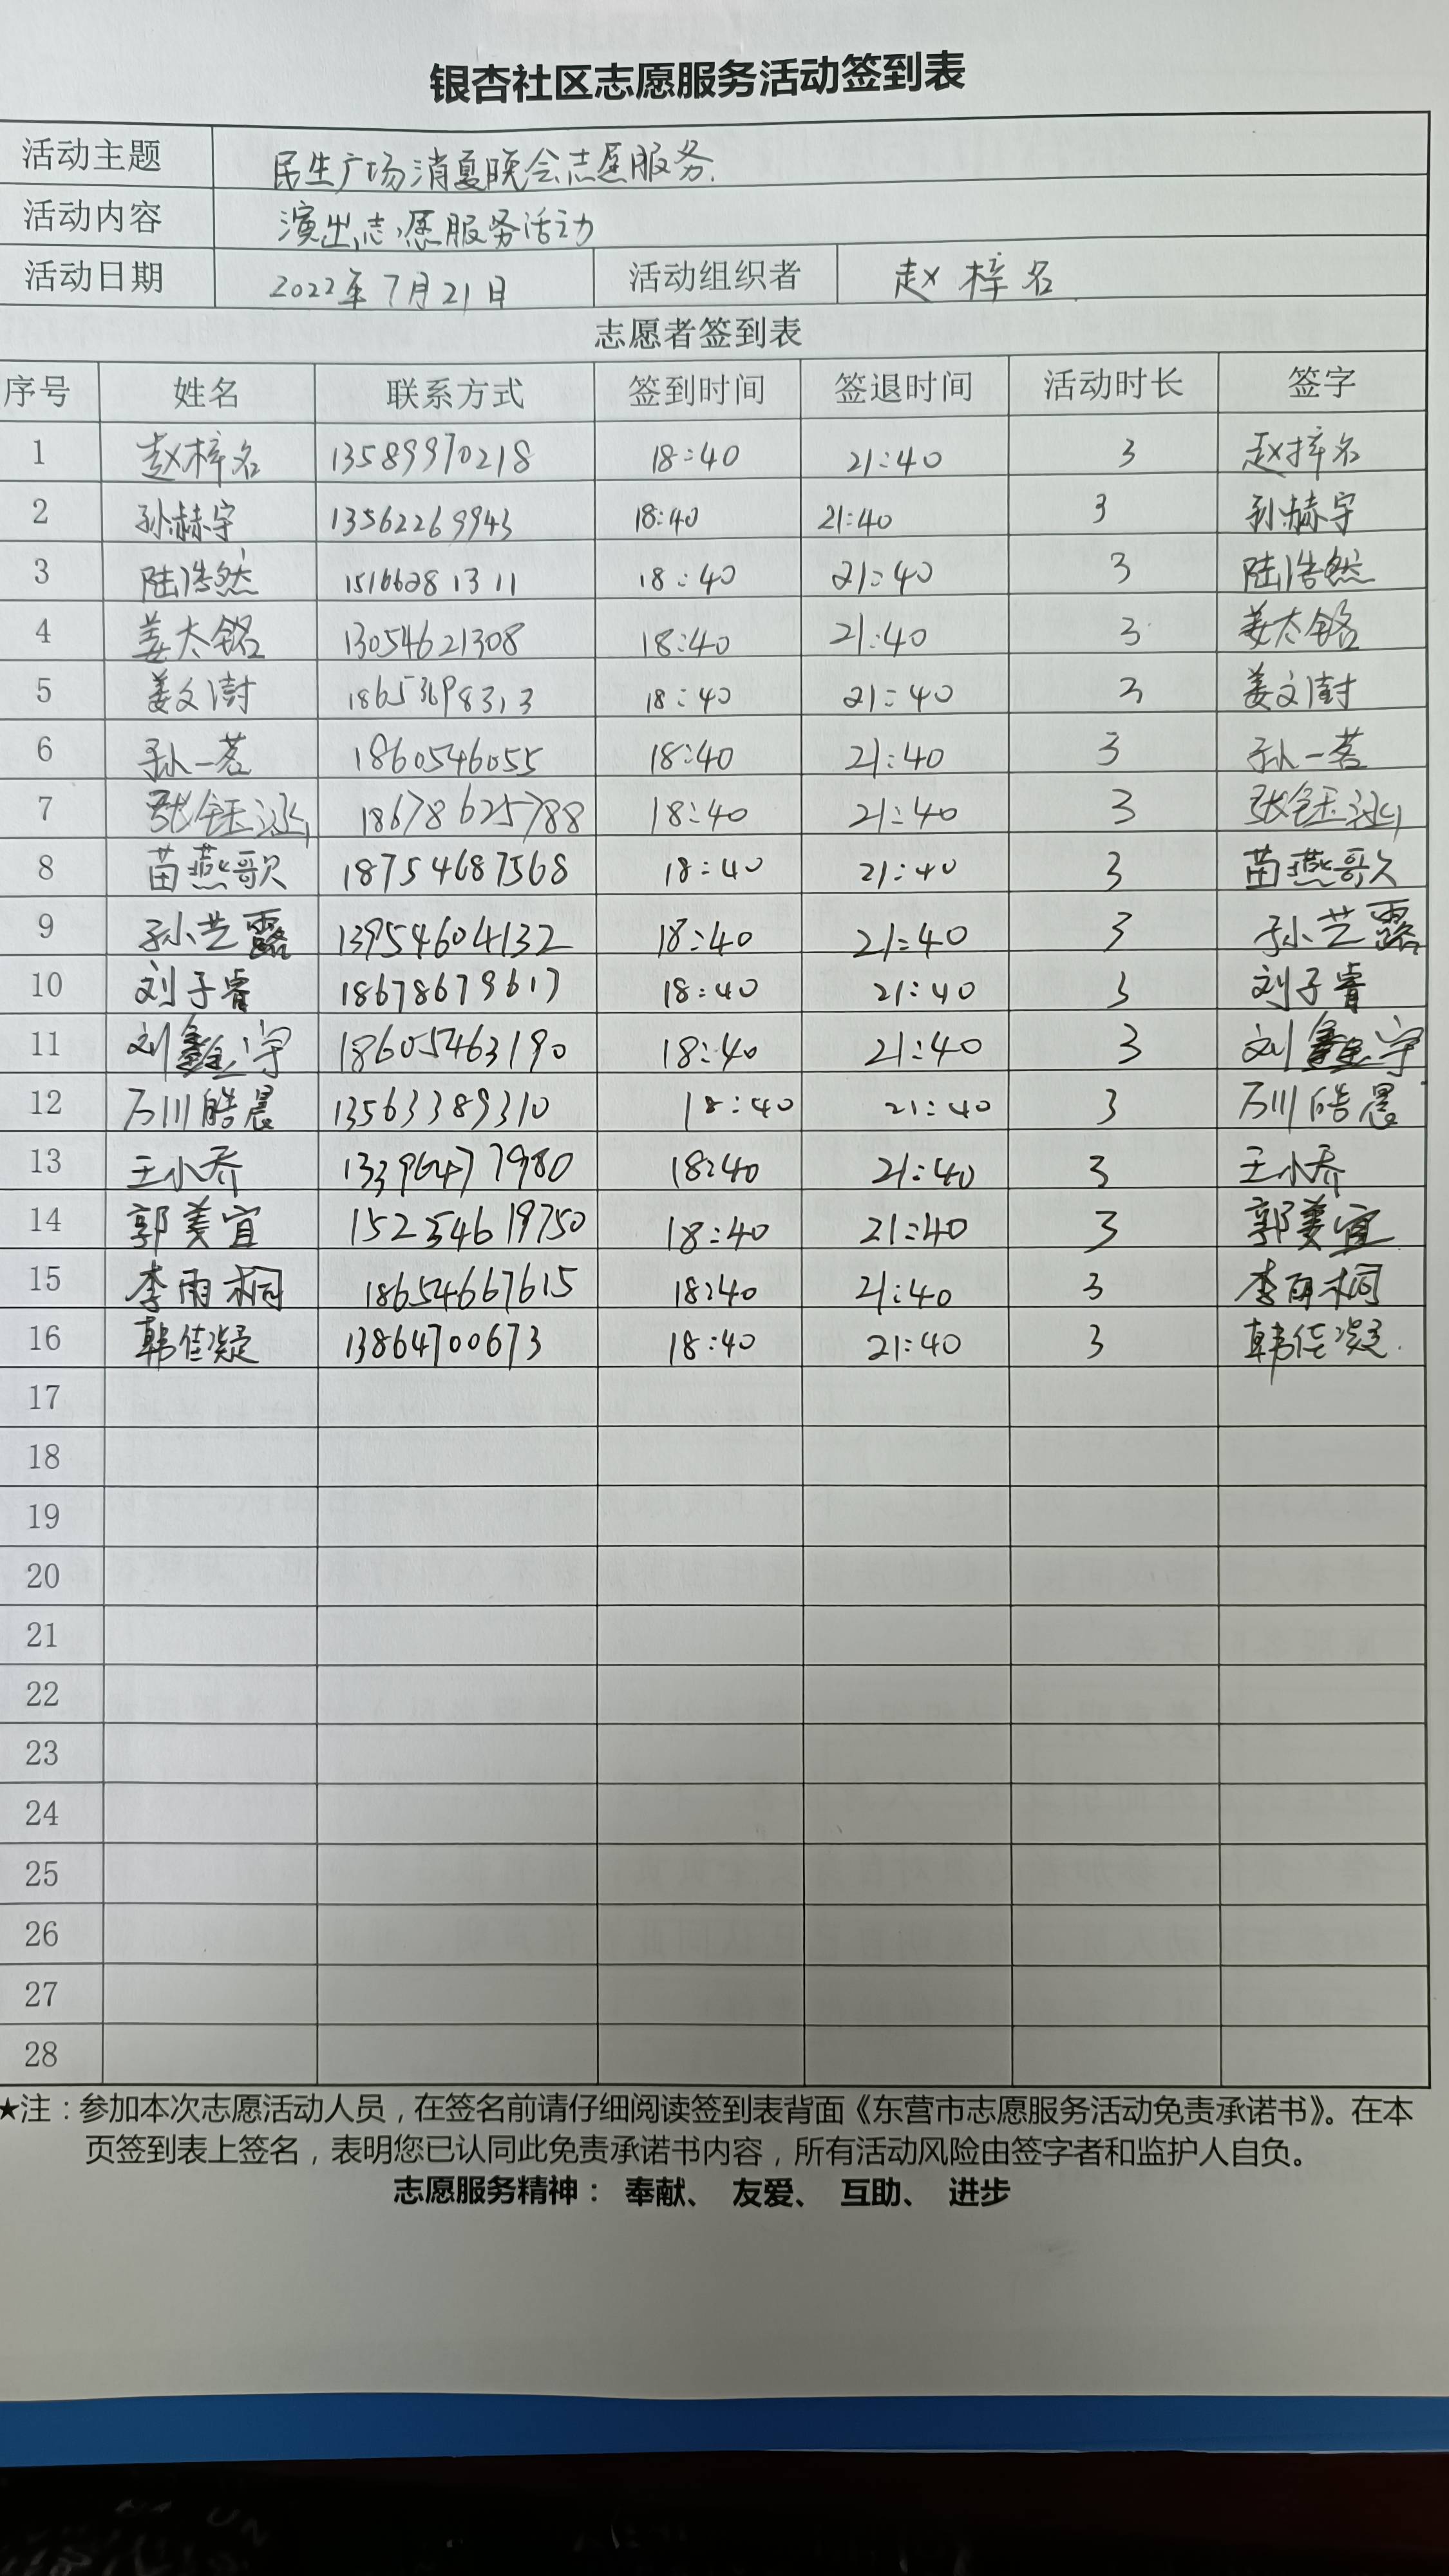 银杏社区志愿服务活动签到表
活动主题 民生广场消夏晚会志愿服务.
活动内容 演出志愿服务活动
活动日期 2022年7月21日 活动组织者 赵梓名
志愿者签到表
序号 姓名 联系方式 签到时间 签退时间 活动时长 签字
1 赵梓名 13589970218 18:40 21:40 3 赵梓名
2 孙赫宇 13562269943 18:40 21:40 3 孙赫宇
3 陆浩然 15166281311 18:40 21:40 3 陆浩然
4 姜太铭 13054621308 18:40 21:40 3 姜太铭
5 姜文澍 18653698313 18:40 21:40 3 姜文澍
6 孙一茗 1860546055 18:40 21:40 3 孙一茗
7 张钰泓 18678625788 18:40 21:40 3 张钰泓
8 苗燕歌 18754687568 18:40 21:40 3 苗燕歌
9 孙艺露 13954604132 18:40 21:40 3 孙艺露
10 刘子睿 18678679617 18:40 21:40 3 刘子睿
11 刘鑫宇 18605463190 18:40 21:40 3 刘鑫宇
12 万川皓晨 13563389310 18:40 21:40 3 万川皓晨
13 王小乔 13396477980 18:40 21:40 3 王小乔
14 郭美宜 15254619750 18:40 21:40 3 郭美宜
15 李雨桐 18654667615 18:40 21:40 3 李雨桐
16 韩佳凝 13864700673 18:40 21:40 3 韩佳凝.
17
18
19
20
21
22
23
24
25
26
27
28
★注：参加本次志愿活动人员，在签名前请仔细阅读签到表背面《东营市志愿服务活动免责承诺书》。在本
页签到表上签名，表明您已认同此免责承诺书内容，所有活动风险由签字者和监护人自负。
志愿服务精神： 奉献、 友爱、 互助、 进步